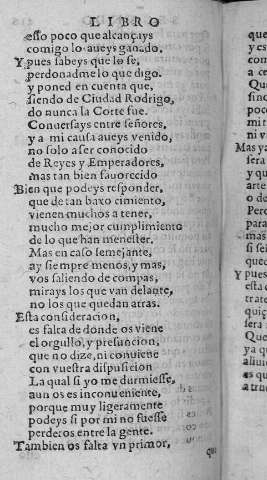 LIBRO
esso poco que alcançays
comigo lo aueys ganado.
Y pues sabeys que lo se,
perdonadme lo que digo.
y poned en cuenta que,
siendo de Ciudad Rodrigo,
do nunca la Corte fue.
Conuersays entre señores,
y a mi causa aueys venido,
no solo a ser conocido
de Reyes y Emperadores,
mas tan bien fauorecido
Bien que podeys responder,
que de tan baxo cimiento,
vienen muchos a tener,
mucho mejor cumplimiento
de lo que han menester.
Mas en caso semejante,
ay siempre menos, y mas,
vos saliendo de compas,
mirays los que van delante,
no los que quedan atras.
Esta consideracion,
es falta de donde os viene
el orgullo, y presuncion,
que no dize, ni conuiene
con vuestra dispusicion
La qual si yo me durmiesse,
aun os es inconueniente,
porque muy ligeramente
podeys si por mi no fuesse
perderos entre la gente.
Tambien os falta vn primor,
que